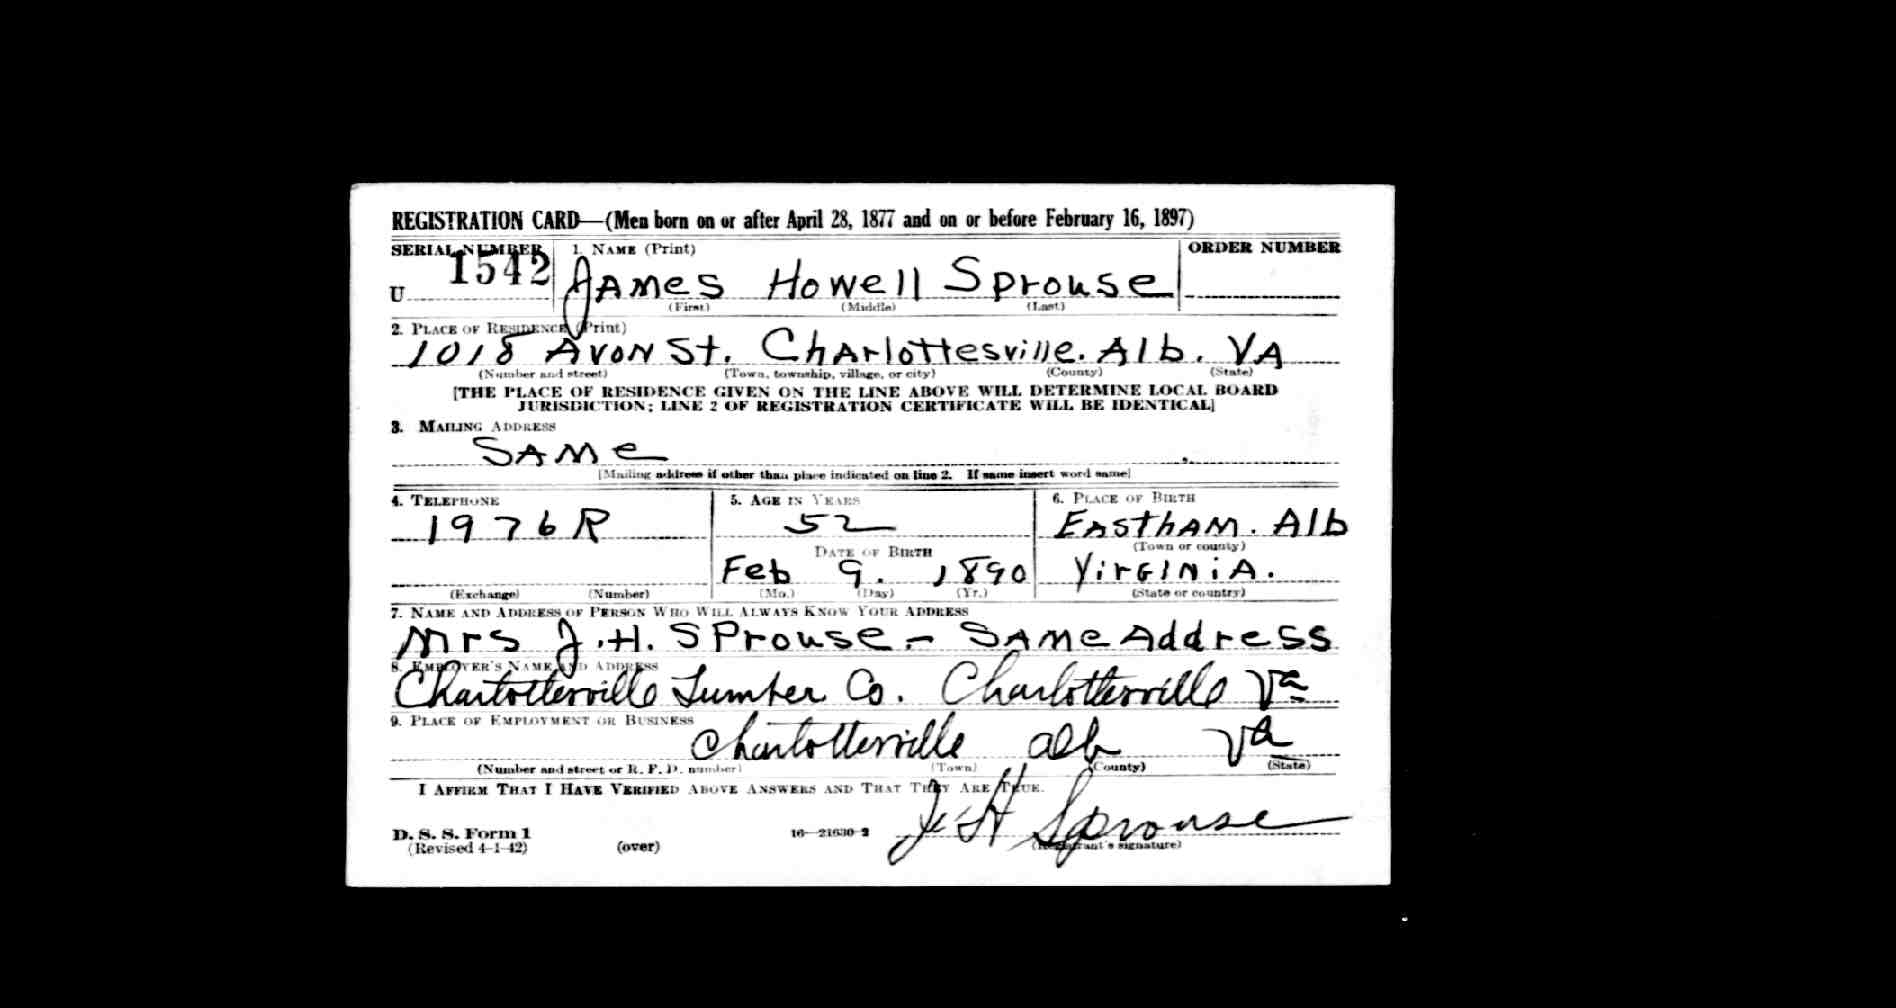 REGISTRATION CARD—(Men born on or after April 28, 1877 and on or before February 16, 1897)
SERIAL NUMBER 1. NAME (Print) ORDER NUMBER
U 1542 James Howell Sprouse
(First) (Middle) (Last)
2. PLACE OF RESIDENCE (Print)
1018 Avon St. Charlottesville. Alb. VA
(Number and street) (Town, township, village, or city) (County) (State)
[THE PLACE OF RESIDENCE GIVEN ON THE LINE ABOVE WILL DETERMINE LOCAL BOARD
JURISDICTION; LINE 2 OF REGISTRATION CERTIFICATE WILL BE IDENTICAL]
3. MAILING ADDRESS
SAMe
[Mailing address if other than place indicated on line 2. If same insert word same]
4. TELEPHONE 5. AGE IN YEARS 6. PLACE OF BIRTH
1976R 52 Eastham. Alb
DATE OF BIRTH (Town or county)
Feb 9. 1890 Virginia.
(Exchange) (Number) (Mo.) (Day) (Yr.) (State or country)
7. NAME AND ADDRESS OF PERSON WHO WILL ALWAYS KNOW YOUR ADDRESS
Mrs J.H. Sprouse - SAMe Address
8. EMPLOYER'S NAME AND ADDRESS
Charlottesville Lumber Co. Charlottesville Va
9. PLACE OF EMPLOYMENT OR BUSINESS
Charlottesville Alb Va
(Number and street or R. F. D. number) (Town) (County) (State)
I AFFIRM THAT I HAVE VERIFIED ABOVE ANSWERS AND THAT THEY ARE TRUE.
J H Sprouse
D. S. S. Form 1 16—21630-2
(Revised 4-1-42) (over) (Registrant's signature)